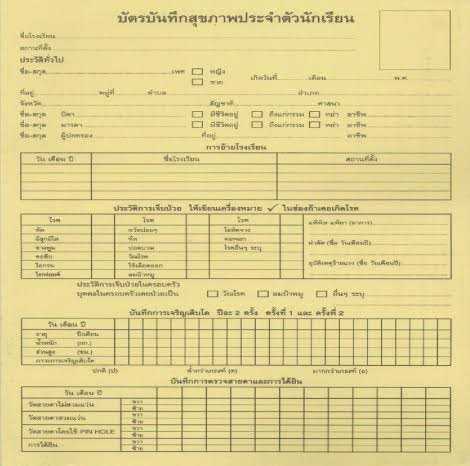 บัตรบันทึกสุขภาพประจำตัวนักเรียน
ชื่อโรงเรียน
สถานที่ตั้ง
ประวัติทั่วไป
ชื่อ-สกุล เพศ หญิง
ชาย เกิดวันที่ เดือน พ.ศ.
ที่อยู่ หมู่ที่ ตำบล อำเภอ
จังหวัด สัญชาติ ศาสนา
ชื่อ-สกุล บิดา มีชีวิตอยู่ ถึงแก่กรรม หย่า อาชีพ
ชื่อ-สกุล มารดา มีชีวิตอยู่ ถึงแก่กรรม หย่า อาชีพ
ชื่อ-สกุล ผู้ปกครอง ที่อยู่ อาชีพ
การย้ายโรงเรียน
วัน เดือน ปี ชื่อโรงเรียน สถานที่ตั้ง
ประวัติการเจ็บป่วย ให้เขียนเครื่องหมาย ✓ ในช่องถ้าเคยเกิดโรค
โรค โรค โรค แพ้พิษ แพ้ยา (อาการ)
หัด หวัดบ่อยๆ โลหิตจาง
อีสุกอีใส หืด คอพอก
คางทูม ปอดบวม โรคอื่นๆ ระบุ ผ่าตัด (ชื่อ วันเดือนปี)
คอตีบ วัณโรค
ไอกรน ไข้เลือดออก อุบัติเหตุร้ายแรง (ชื่อ วันเดือนปี)
ไทฟอยด์ ลมบ้าหมู
ประวัติการเจ็บป่วยในครอบครัว
บุคคลในครอบครัวเคยป่วยเป็น วัณโรค ลมบ้าหมู อื่นๆ ระบุ
บันทึกการเจริญเติบโต ปีละ 2 ครั้ง ครั้งที่ 1 และ ครั้งที่ 2
วัน เดือน ปี
อายุ ปี/เดือน
น้ำหนัก (กก.)
ส่วนสูง (ซม.)
ภาวะการเจริญเติบโต
ปกติ (ป) ต่ำกว่าเกณฑ์ (ต) มากกว่าเกณฑ์ (ม)
บันทึกการตรวจสายตาและการได้ยิน
วัน เดือน ปี
วัดสายตาไม่สวมแว่น ขวา
ซ้าย
วัดสายตาสวมแว่น ขวา
ซ้าย
วัดสายตาโดยใช้ PIN HOLE ขวา
ซ้าย
การได้ยิน ขวา
ซ้าย